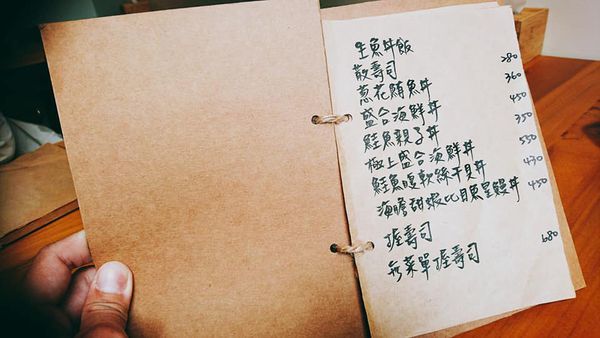 生魚丼飯
散壽司 280
蔥花鮪魚丼 360
盛合海鮮丼 450
鮭魚親子丼 350
極上盛合海鮮丼 550
鮭魚腹軟絲干貝丼 430
海膽甜蝦比目魚星鰻丼 450
握壽司
無菜單握壽司 680